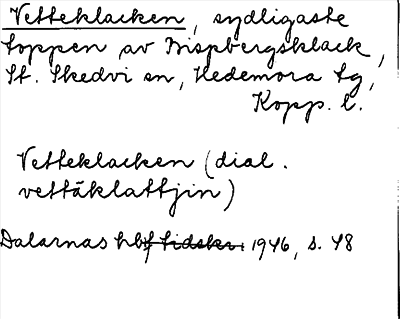 Vetteklacken, sydligaste
toppen av Bispbergsklack,
St. Skedvi sn, Hedemora tg,
Kopp. l.
Vetteklacken (dial.
vettäklattjin)
Dalarnas hbf tidskr. 1946, s. 48